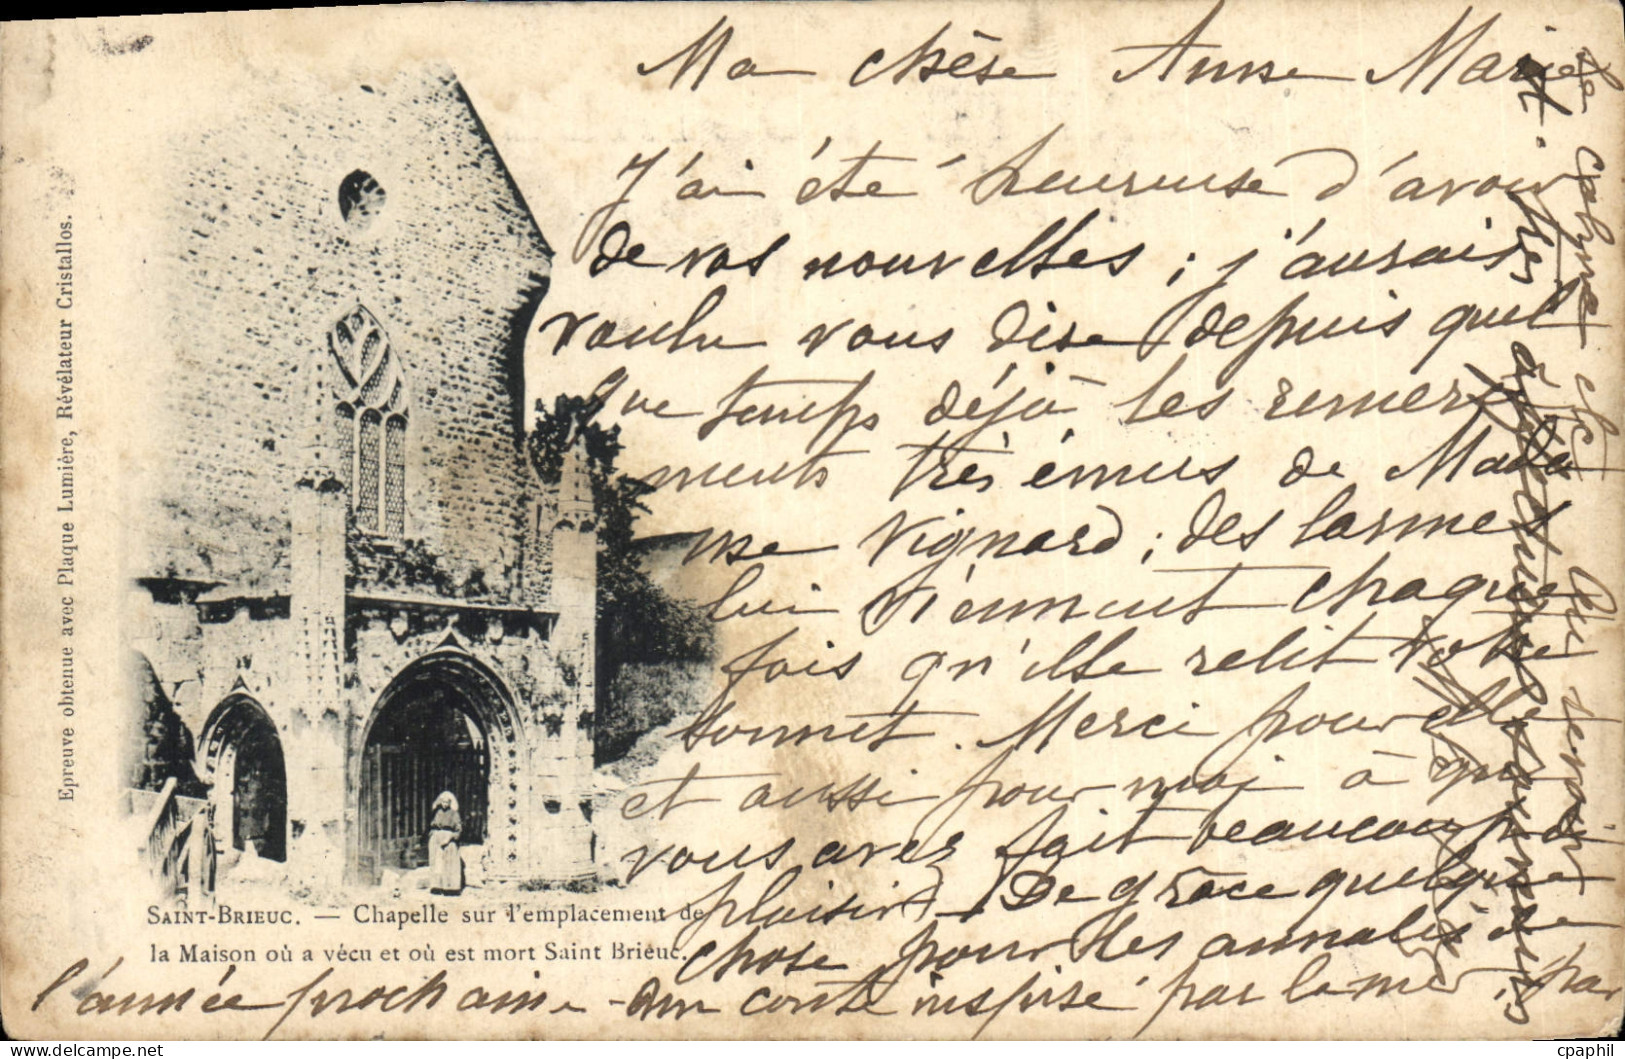 Ma chère Anne Marie
J'ai été heureuse d'avoir
de vos nouvelles ; j'aurais
voulu vous dire depuis quel
que temps déjà les remercî
ments très émus de Mada
me Vignard ; des larmes
lui viennent chaque
fois qu'elle relit votre
sonnet. Merci pour elle
et aussi pour moi à qui
vous avez fait beaucoup de
plaisir. De grâce quelque
chose pour les annales de
l'année prochaine - un conte inspiré par la mer, par
le calme etc Au revoir
SAINT-BRIEUC. — Chapelle sur l'emplacement de
la Maison où a vécu et où est mort Saint Brieuc.
Epreuve obtenue avec Plaque Lumière, Révélateur Cristallos.
cpaphil